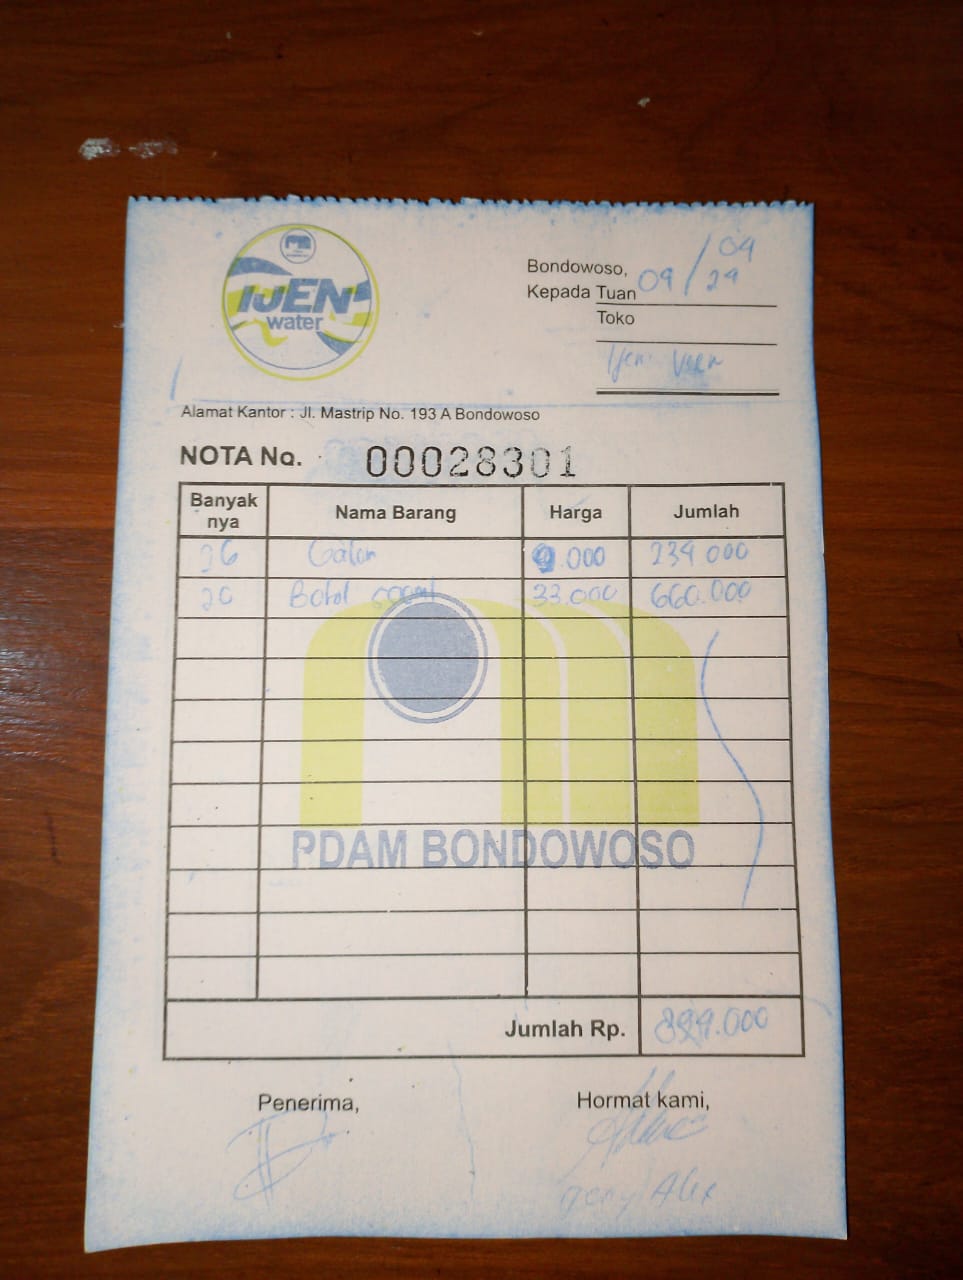 IJEN
water
Bondowoso, 09/09
29
Kepada Tuan
Toko
Ijen
Alamat Kantor : Jl. Mastrip No. 193 A Bondowoso
NOTA No. 00028301
Banyak nya Nama Barang Harga Jumlah
26 Galon 9.000 234 000
20 Botol 600ml 33.000 660.000
PDAM BONDOWOSO
Jumlah Rp. 894.000
Penerima, Hormat kami,
Alex